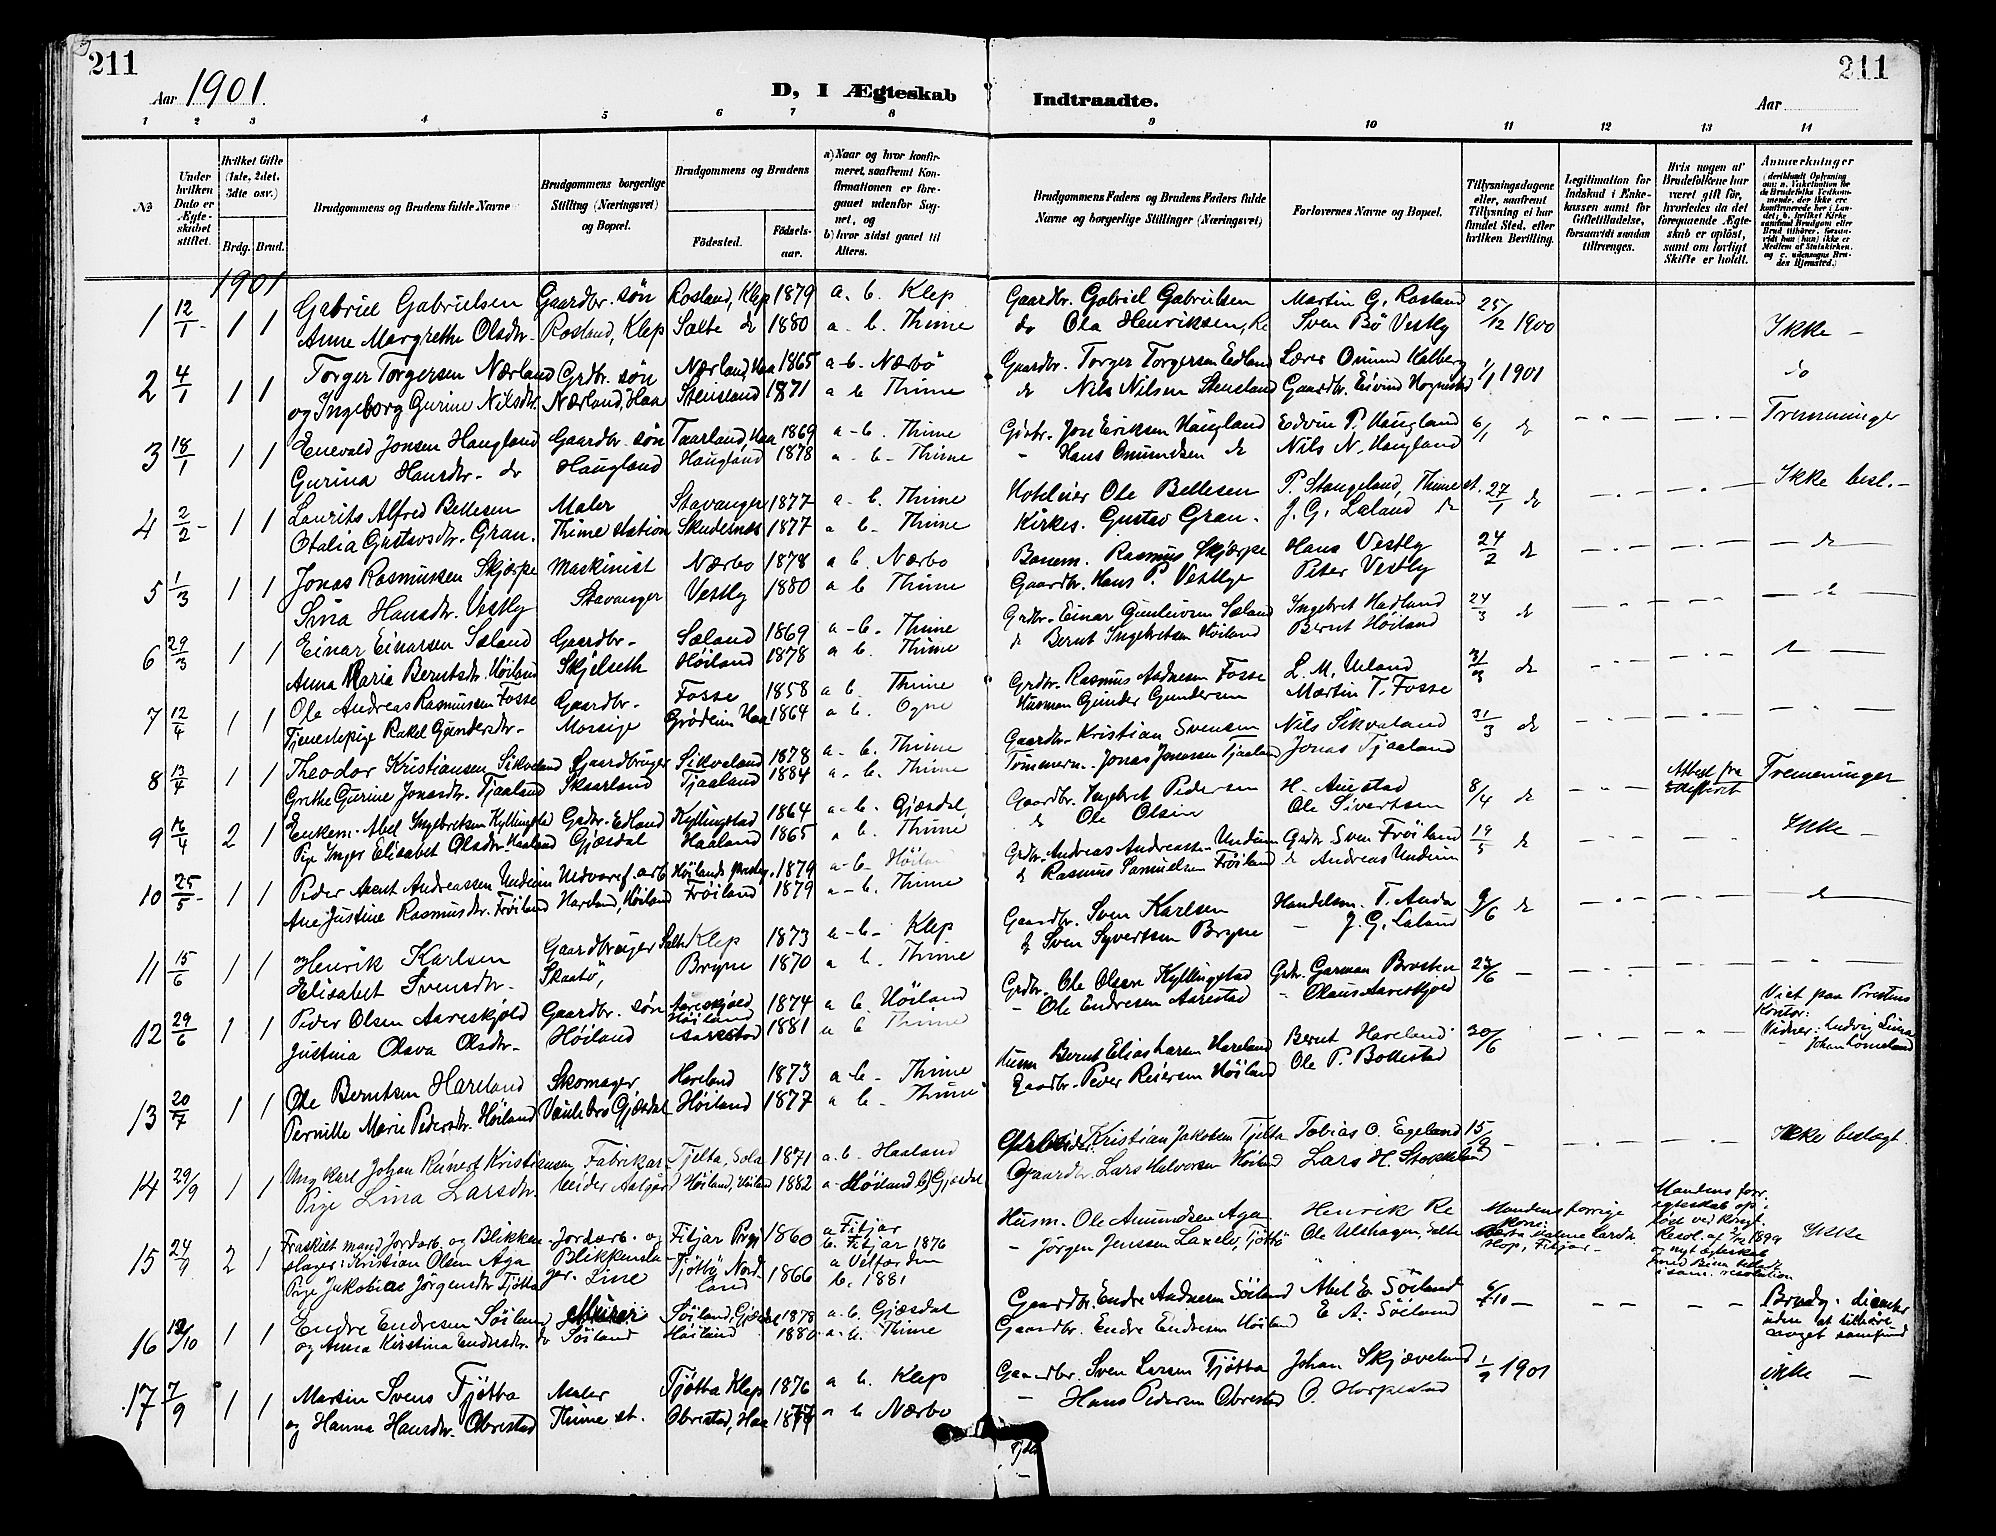 211
211
Aar 1901.
D, I Ægteskab Indtraadte.
Aar
1 2 3 4 5 6 7 8 9 10 11 12 13 14
№
Under hvilken Dato er Ægteskabet stiftet.
Hvilket Gifte (1ste, 2det, 3die osv.)
Brdg. Brud.
Brudgommens og Brudens fulde Navne
Brudgommens borgerlige Stilling (Næringsvei) og Bopæl.
Brudgommens og Brudens
Fødested. Fødselsaar.
a) Naar og hvor konfirmeret, saafremt Konfirmationen er foregaaet udenfor Sognet, og
b) hvor sidst gaaet til Alters.
Brudgommens Faders og Brudens Faders fulde Navne og borgerlige Stillinger (Næringsvei)
Forlovernes Navne og Bopæl.
Tillysningsdagene eller, saafremt Tillysning ei har fundet Sted, efter hvilken Bevilling.
Legitimation for Indskud i Enkekassen samt for Giftetilladelse, forsaavidt saadan tiltrænges.
Hvis nogen af Brudefolkene har været gift før, hvorledes da det foregaaende Ægteskab er opløst, samt om lovligt Skifte er holdt.
Anmærkninger
1901
1 12/1 - 1 1 Gabriel Gabrielsen Gaardbr. søn Rosland, Klep 1879 a. b. Klep Gaardbr. Gabriel Gabrielsen Martin G. Rosland 25/12 1900
Anne Margrethe Olsdtr. Rosland, Klep Salte do 1880 a. b. Thime do Ola Henriksen, Re Sven Bø Vestly Ikke -
2 4/1 1 1 Torger Torgersen Nærland Grdbr. søn Nærland, Haa 1865 a-b. Nærbø Gaardbr. Torger Torgersen Edland Lærer Omund Kalberg 1/1 1901 do
og Ingeborg Gurine Nilsdtr. Nærland, Haa Stensland 1871 a b Thime do Nils Nilsen Stensland Gaardbr. Eivind Hognestad
3 18/1 1 1 Enevald Jonsen Haugland Gaardbr. søn Taarland, Haa 1869 a-b. Thime Grbr. Jon Eriksen Haugland Edvin P. Haugland 6/1 do Tremeninger
Gurina Hansdtr. do Haugland Haugland 1878 a - b - Thime - Hans Omundsen do Nils N. Haugland
4 2/2 - 1 1 Laurits Alfred Bellesen Maler Stavanger 1877 a. b. Thime Hoteleier Ole Bellesen P. Stangeland, Thime st. 27/1 do Ikke besl. -
Otalia Gustavsdtr. Gran. Thime station Skudesnæs 1877 a b. Thime Kirkes. Gustav Gran. J. G. Laland do
5 1/3 1 1 Jonas Rasmussen Skjærpe Maskinist Nærbø 1878 a b. Nærbø Banem. Rasmus Skjærpe Hans Vestly 24/2 do - do -
Sina Hansdtr. Vestly Stavanger Vestly 1880 a b Thime Gaardbr. Hans P. Vestlye Peter Vestly
6 29/3 1 1 Einar Einarsen Sæland Gaardbr. Sæland 1869 a-b. Thime Grdbr. Einar Gunleivsen Sæland Ingebret Hadland 24/3 do
Anna Maria Berntsdtr. Høiland Skjelseth Høiland 1878 a b. Thime do Bernt Ingebretsen Høiland Bernt Høiland
7 12/4 1 1 Ole Andreas Rasmussen Fosse Gaardbr. Fosse 1858 a b. Thime Grdbr. Rasmus Andresen Fosse L. M. Ueland 31/3 do
Tjenestepige Rakel Gundersdtr. Mossige Grødeim Haa 1864 a b. Ogne Husman Gunder Gundersen Martin T. Fosse
8 13/4 1 1 Theodor Kristiansen Sikveland Gaardbruger Sikveland 1878 a. b. Thime Gaardbr. Kristian Svensen Nils Sikvaland 31/3 do
Grethe Gurine Jonasdtr. Tjaaland Skaarland Tjaaland 1884 a. b. Thime Tømmerm. Jonas Jonassen Tjaaland Jonas Tjaaland
9 /4 2 1 Enkem. Abel Ingebretsen Kyllingstad Grdbr. Edland Kyllingstad 1864 a-b. Gjæsdal Gaardbr. Ingebret Pedersen H. Auestad 8/4 do Attest fra Skifteret Tremeninger
Pige Inger Elisabet Olsdtr. Haaland Gjæsdal Haaland 1865 a b. Thime do Ole Olsen Ole Sivertsen
10 25/5 - 1 1 Peder Andreassen Undeim Uldvaref. arb Høilands prestegj. 1879 a-b. Høiland Grdbr. Andreas Andreassen Undeim Grdbr. Sven Frøiland 19/5 do Ikke -
Ane Justine Rasmusdtr. Frøiland Hareland, Høiland Frøiland 1879 a-b. Thime do Rasmus Samuelsen Frøiland do Andreas Undeim
11 15/6 1 1 Henrik Karlsen Gaardbruger Salte Klep 1873 a-b- Klep Gaardbr. Sven Karlsen Handelsm. T. Anda 9/6 do do
Elisabet Svensdtr. Skaatø, Bryne 1870 a b. Thime do Sven Syvertsen Bryne - J. G. Laland
12 29/6 1 1 Peder Olsen Aareskjold Gaardbr. søn Aareskjold Høiland 1874 a b. Høiland Grdbr. Ole Olsen Kyllingstad Grdbr. Garman Brosten 23/6 -
Justina Olava Olsdtr. Høiland Aarestad 1881 a b Thime - Ole Endresen Aarestad - Olaus Aareskjold Viet paa Prestens Kontor: Vidner: Ludvig Lima Johan Lomeland
13 20/7 1 1 Ole Berntsen Hareland Skomager Hareland 1873 a-b - Thime Husm Bernt Elias Larsen Hareland Bernt Hareland 30/6
Pernille Marie Pedersdtr. Høiland Gjæsdal Høiland 1877 a b - Thime Gaardbr. Peder Reiersen Høiland Ole P. Bollestad
14 29/9 1 1 Ung karl Johan Reinert Kristiansen, Fabrikarbeider Tjelta, Sola 1871 a. b. Haaland Kristian Jakobsen Tjelta Tobias O. Egeland 15/9 Ikke beslægt.
Pige Lina Larsdtr. Aalgård Høiland, Høiland 1882 a Høiland b) Gjæsdal Gaardbr. Lars Halvorsen Høiland Lars H. Stokkeland
15 24/9 2 1 Fraskilt mand Jordarb. og Blikkenslager: Kristian Olsen Aga Jordarb. og Blikkenslager. Line Fitjar Prgj 1860 a Fitjar b. Fitjar 1876 Husm. Ole Amundsen Aga Henrik Re Mandens forrige kone: Mandens forr. Ægteskab opløst ved Kongl. Resol. af 1899 og nyt Ægteskab resolution Ikke
Pige Jakobine Jørgensdtr. Tjøtta Tjøttø Nordland 1866 a Velfjorden b. 1881 - Jørgen Jenssen Laxelv, Tjøttø Ole Ulshagen, Salte
16 12/10 1 1 Endre Endresen Søiland Murer Søiland, Gjæsdal 1878 a. b. Gjæsdal Gaardbr. Endre Andresen Søiland Abel E. Søiland 6/10 - Brudg. dissenter uden at tilhøre noget samfund
og Anna Kirstina Endresdtr. do Søiland Høiland 1880 a. b. Thime Gaardbr. Endre Endresen Høiland E. A. Søiland
17 7/9 1 1 Martin Svens Tjøtta Maler Tjøtta Klep 1876 a b. Klep Gaardbr. Sven Larsen Tjøtta Johan Skjæveland 1/9 1901 ikke -
og Hanna Hansdtr. Obrestad Thime st. Obrestad, Haa a b Nærbø - Hans Pedersen Obrestad O. Horpestad